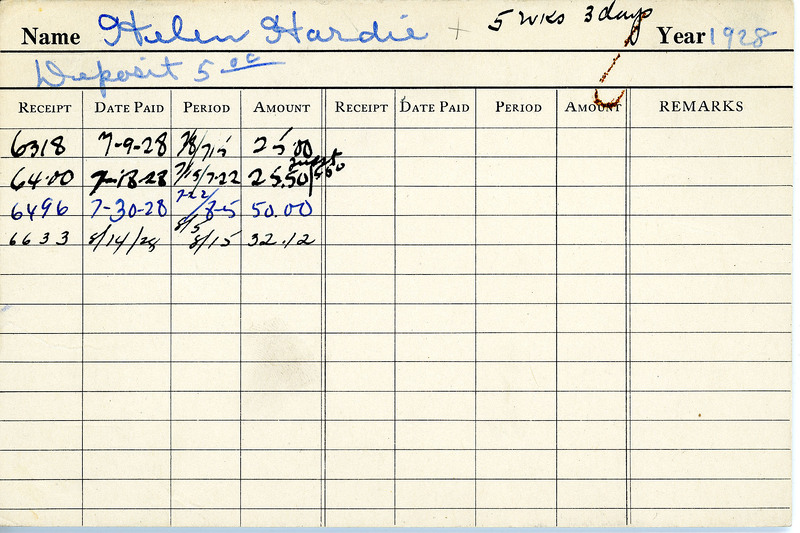 Name Helen Hardie + 5 wks 3 days Year 1928
Deposit 5.00
RECEIPT DATE PAID PERIOD AMOUNT RECEIPT DATE PAID PERIOD AMOUNT REMARKS
6318 7-9-28 7/8/7/15 25.00
6400 7-18-28 7/15/7-22 25.50 5.50
6496 7-30-28 7-22/8-5 50.00
6633 8/14/28 8/5 8/15 32.12